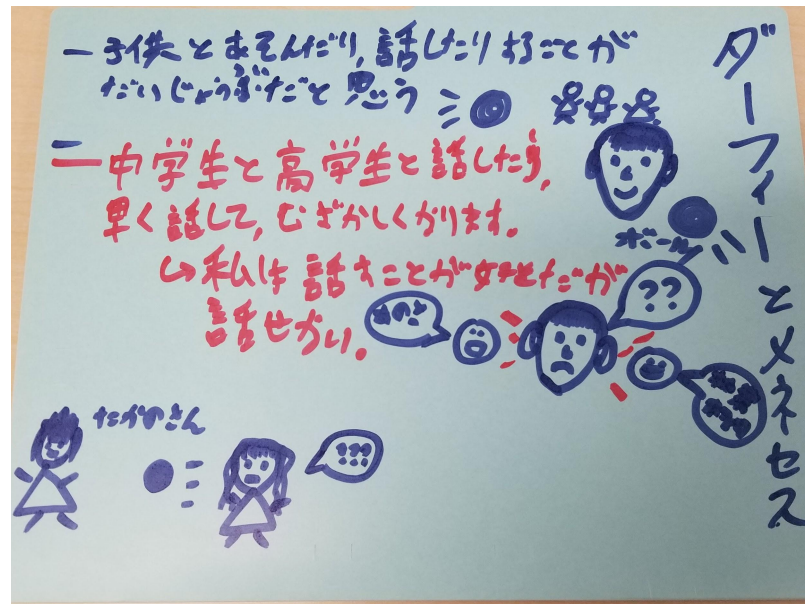 ダーフィーとメネセス
一子供とあそんだり,話したりすることが
だいじょうぶだと思う
二中学生と高学生と話したら,
早く話して,むざかしくかります。
↳私は話すことが好きだが
話せかい。
ボール
??
あのさ
たかのさん
???